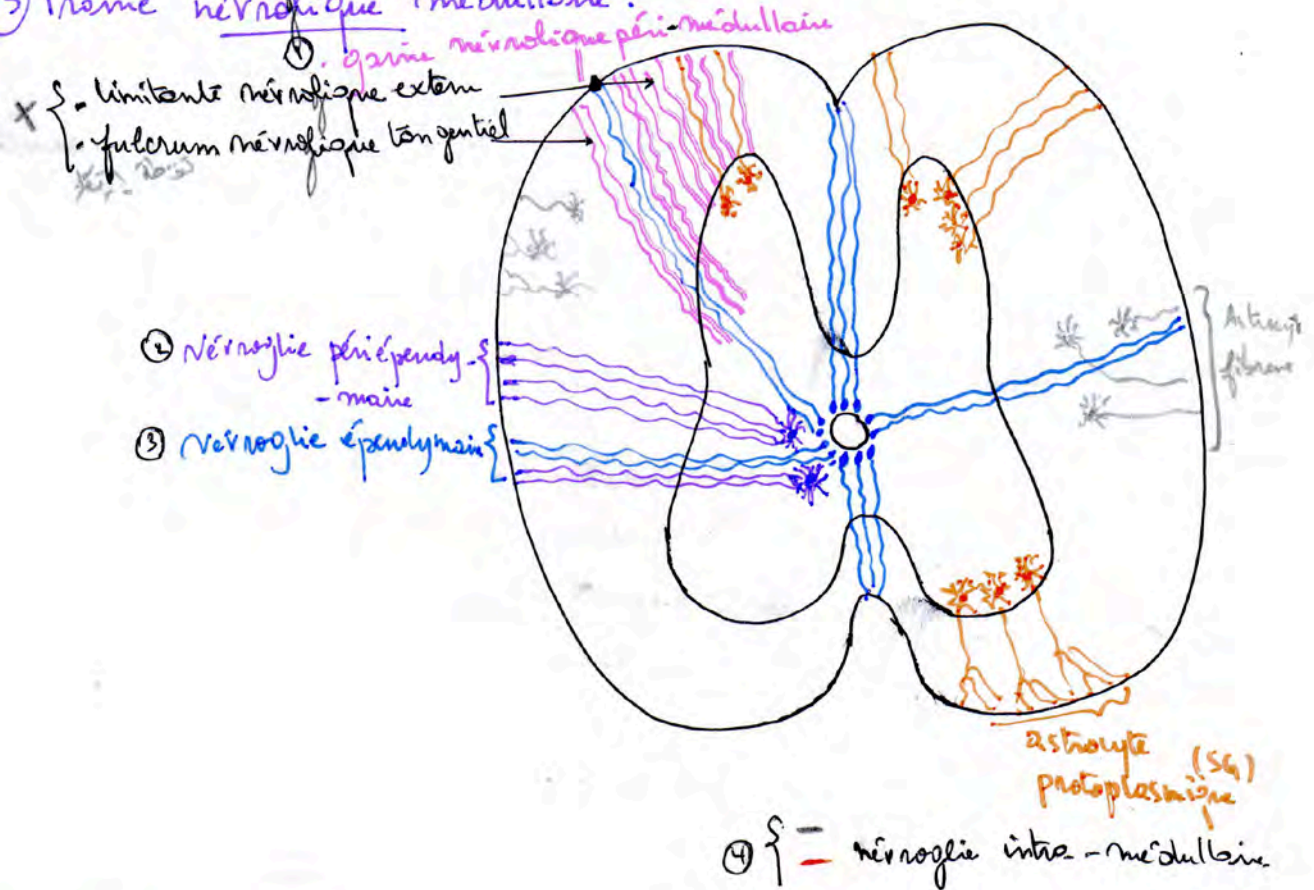 3) Trame névroglique médullaire :
① . gaine névroglique péri-médullaire
x { - limitante névroglique externe
- fulcrum névroglique tangentiel
② Névroglie périépendy-
-maire
③ Névroglie épendymaire
Astrocyte
fibreux
astrocyte
protoplasmique (SG)
④ { névroglie intra-médullaire